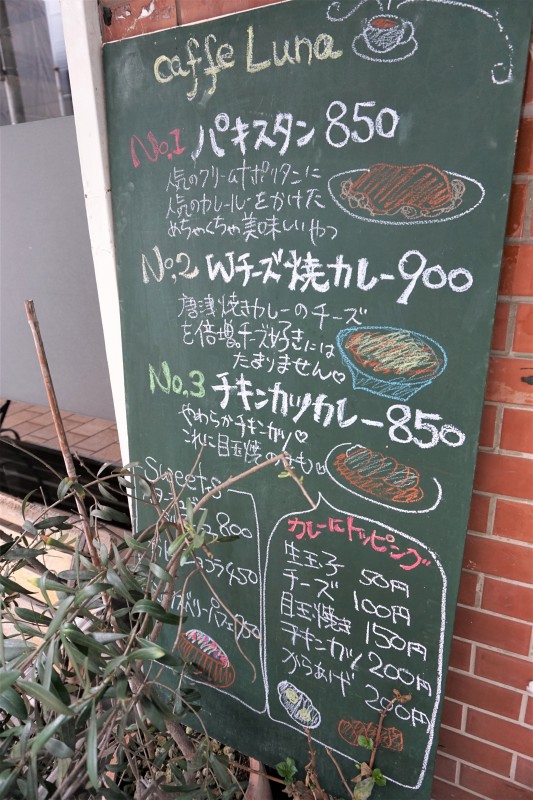 caffe Luna
No.1 パキスタン 850
人気のクリームナポリタンに
人気のカレールーをかけた
めちゃくちゃ美味しいやつ
No.2 Wチーズ焼カレー900
唐津焼きカレーのチーズ
を倍増。チーズ好きには
たまりません♡
No.3 チキンカツカレー850
やわらかチキンカツ♡
これに目玉焼のせも♡
Sweets
800
450
カレーにトッピング
生玉子 50円
チーズ 100円
目玉焼き 150円
チキンカツ 200円
からあげ 200円